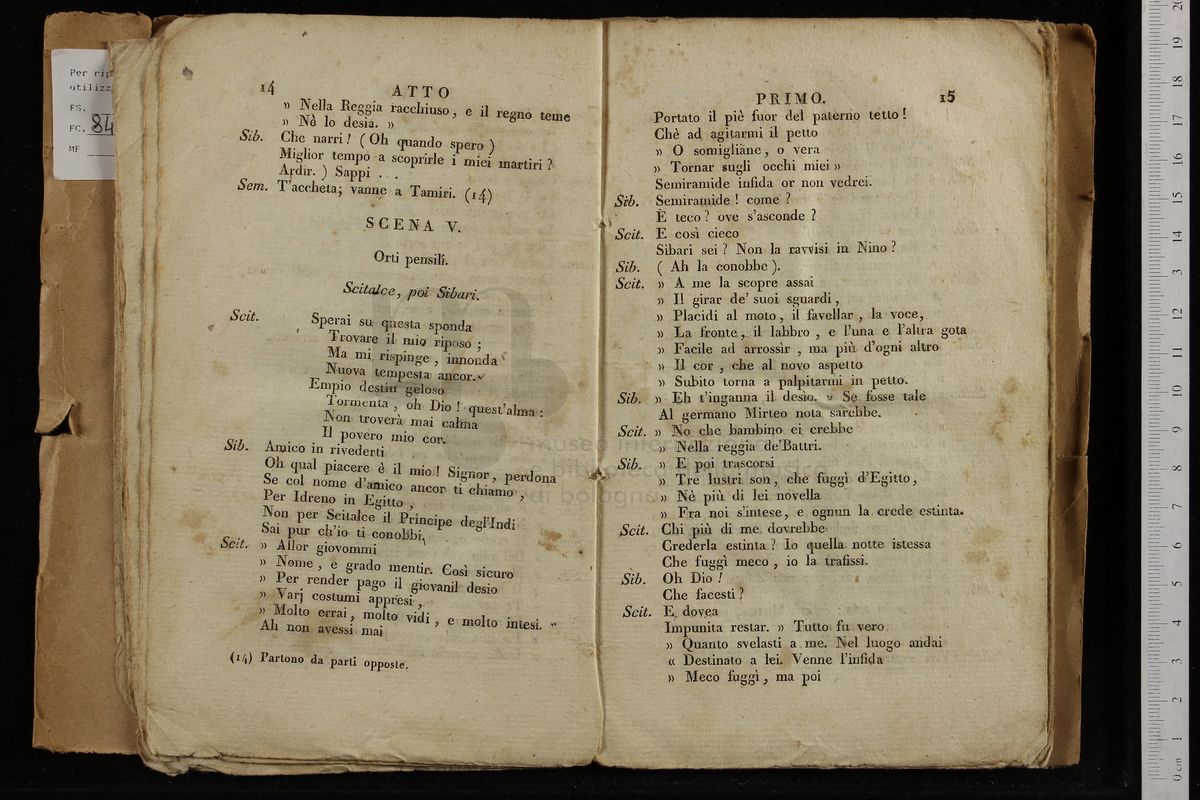 Per rip
utilizz
FS.
FC. 84
MF
14 ATTO
» Nella Reggia racchiuso, e il regno teme
» Nè lo desia. »
Sib. Che narri! (Oh quando spero)
Miglior tempo a scoprirle i miei martiri?
Ardir.) Sappi . . .
Sem. T'accheta; vanne a Tamiri. (14)
SCENA V.
Orti pensili.
Scitalce, poi Sibari.
Scit. Sperai su questa sponda
Trovare il mio riposo;
Ma mi rispinge, innonda
Nuova tempesta ancor.
Empio destin geloso
Tormenta, oh Dio! quest'alma:
Non troverà mai calma
Il povero mio cor.
Sib. Amico in rivederti
Oh qual piacere è il mio! Signor, perdona
Se col nome d'amico ancor ti chiamo,
Per Idreno in Egitto,
Non per Scitalce il Principe degl'Indi
Sai pur ch'io ti conobbi.
Scit. » Allor giovommi
» Nome, e grado mentir. Così sicuro
» Per render pago il giovanil desio
» Varj costumi appresi,
» Molto errai, molto vidi, e molto intesi. «
Ah non avessi mai
(14) Partono da parti opposte.
PRIMO. 15
Portato il piè fuor del paterno tetto!
Chè ad agitarmi il petto
» O somigliane, o vera
» Tornar sugli occhi miei »
Semiramide infida or non vedrei.
Sib. Semiramide! come?
È teco? ove s'asconde?
Scit. E così cieco
Sibari sei? Non la ravvisi in Nino?
Sib. (Ah la conobbe).
Scit. » A me la scopre assai
» Il girar de' suoi sguardi,
» Placidi al moto, il favellar, la voce,
» La fronte, il labbro, e l'una e l'altra gota
» Facile ad arrossir, ma più d'ogni altro
» Il cor, che al novo aspetto
» Subito torna a palpitarmi in petto.
Sib. » Eh t'inganna il desio. » Se fosse tale
Al germano Mirteo nota sarebbe.
Scit. » No che bambino ei crebbe
» Nella reggia de'Battri.
Sib. » E poi trascorsi
» Tre lustri son, che fuggì d'Egitto,
» Nè più di lei novella
» Fra noi s'intese, e ognun la crede estinta.
Scit. Chi più di me dovrebbe
Crederla estinta? Io quella notte istessa
Che fuggì meco, io la trafissi.
Sib. Oh Dio!
Che facesti?
Scit. E dovea
Impunita restar. » Tutto fu vero
» Quanto svelasti a me. Nel luogo andai
« Destinato a lei. Venne l'infida
» Meco fuggì, ma poi